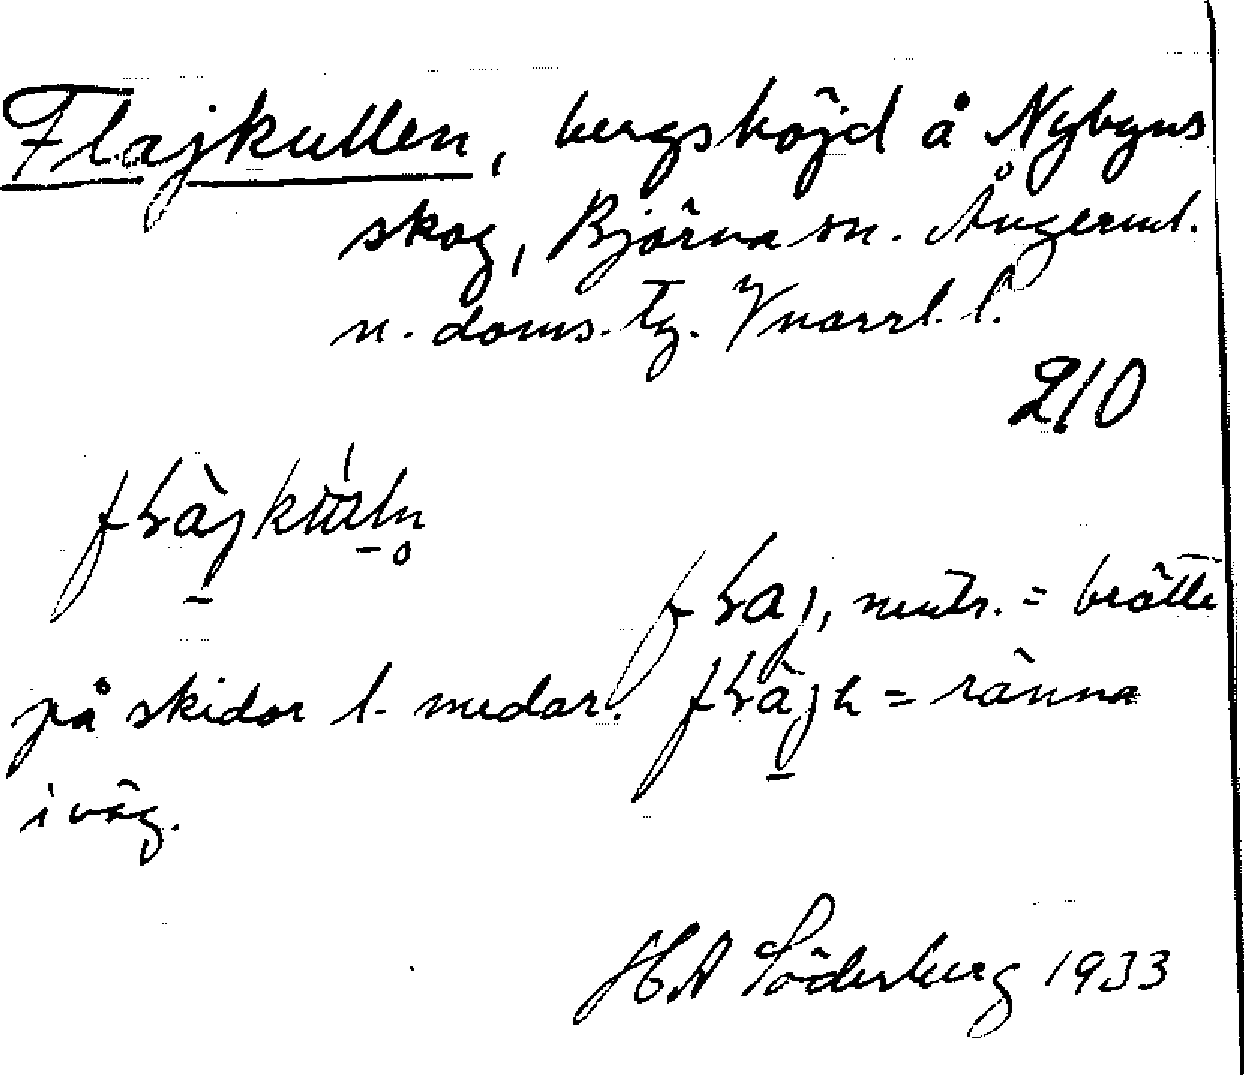 Flajkullen, bergshöjd å Nybyns
skog, Björna sn. Ångerml.
n. doms. tg. Vnorrl. l.
210
fɽàjkúln̥
fɽaj, neutr. = brätte
på skidor l. medar. fɽàjh = ränna
iväg.
HA Söderberg 1933